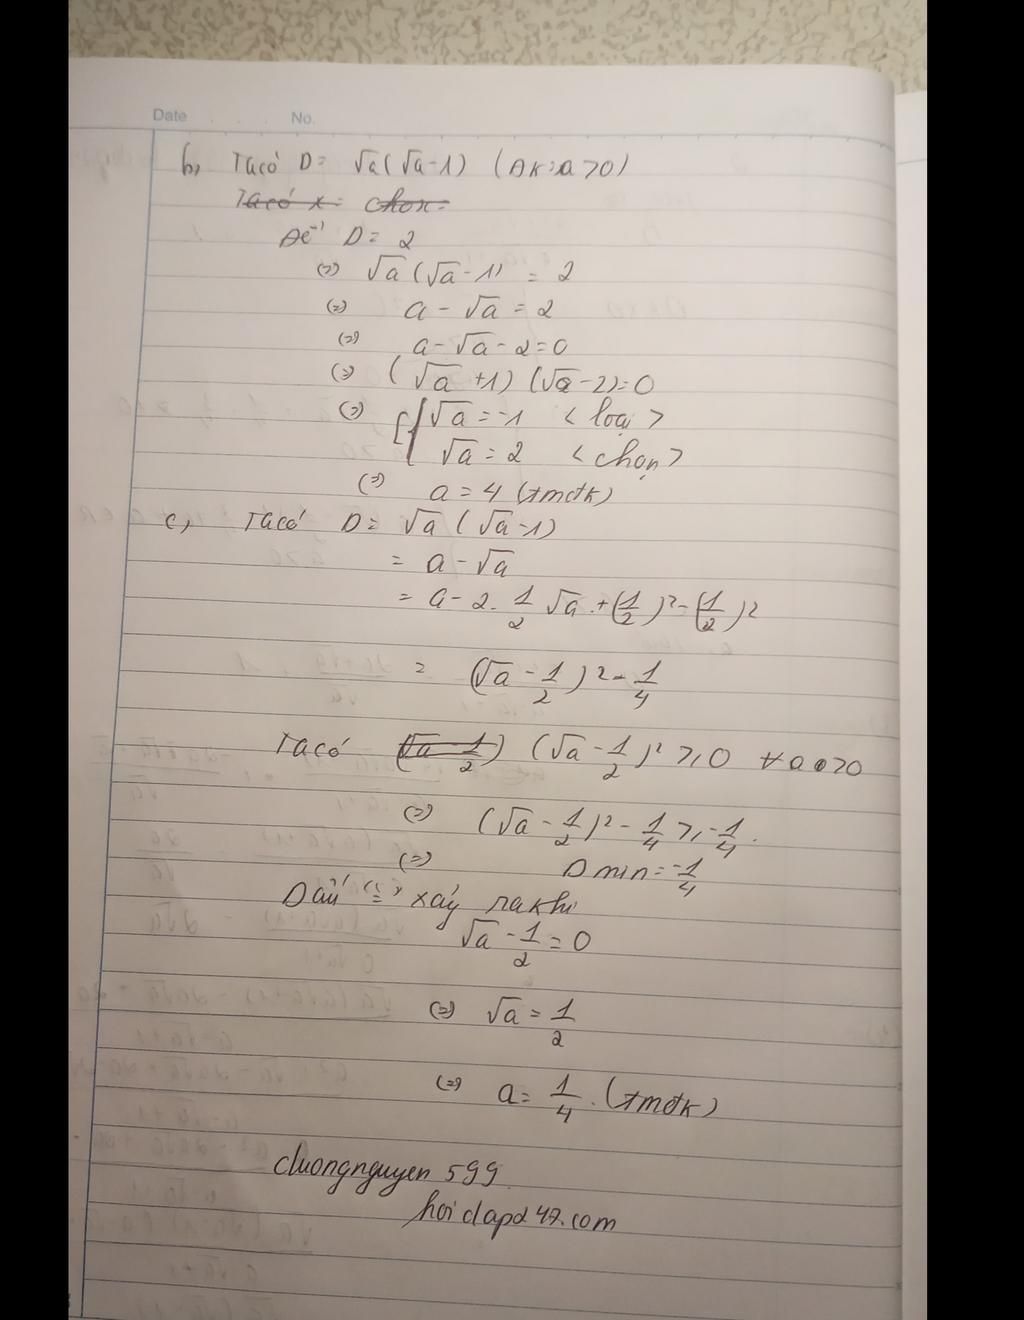 Date No.
b, Ta có D = √a(√a-1) (ĐK: a>0)
Ta có x = chọn =
Để D = 2
(=) √a(√a-1) = 2
(=) a - √a = 2
(=) a - √a - 2 = 0
(=) (√a+1)(√a-2) = 0
(=) [ √a = -1 <loại>
√a = 2 <chọn>
(=) a = 4 (tmđk)
c, Ta có D = √a(√a-1)
= a - √a
= a - 2. 1/2 √a + (1/2)² - (1/2)²
= (√a - 1/2)² - 1/4
Ta có (√a - 1/2) (√a - 1/2)² ≥ 0 ∀ a > 0
(=) (√a - 1/2)² - 1/4 ≥ -1/4.
(=) D min = -1/4
Dấu "=" xảy ra khi
√a - 1/2 = 0
(=) √a = 1/2
(=) a = 1/4. (tmđk)
chuongnguyen 599
hoidapd247.com